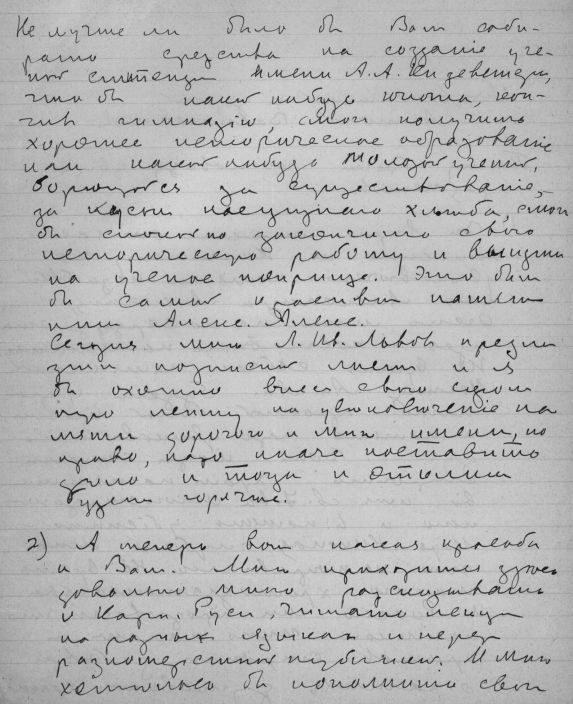 Не лучше ли было бы Вам соби-
рать средства на созданіе уче-
ной стипендіи имени А.А. Кизеветтера,
что бы какой нибудь юноша, кон-
чив гимназію, смог получить
хорошее историческое образованіе
или какой нибудь молодой ученый,
борющійся за существованіе,
за кусок насущнаго хлѣба, смог
бы спокойно закончить свою
историческую работу и выйти
на ученое поприще. Это был
бы самый красивый памят-
ник Алекс. Алекс.
Сегодня мнѣ Л. Ив. Львов предло
жил подписной лист и я
бы охотно внес свою
лепту на увѣковѣченіе па
мяти дорогого и мнѣ имени, но
право, надо иначе поставить
дѣло и тогда и отклик
будет горячее.
2) А теперь вот какая просьба
к Вам. Мнѣ приходится
довольно много разсказывать
о Карп. Руси, читать лекціи
на разных языках и перед
разношерстной публикой. И мнѣ
хотѣлось бы пополнить свои